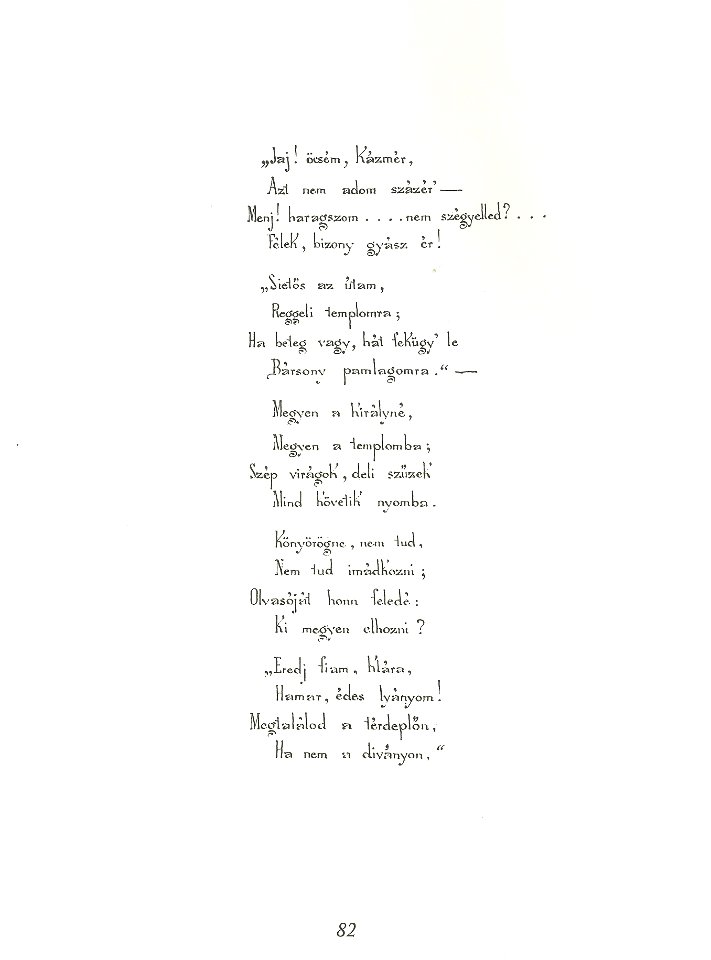 „Jaj! öcsém, Kázmér,
Azt nem adom százér' —
Menj! haragszom . . . . nem szégyelled? . . .
Félek, bizony gyász ér!
„Sietős az útam,
Reggeli templomra;
Ha beteg vagy, hát fekügy' le
Bársony pamlagomra." —
Megyen a királyné,
Megyen a templomba;
Szép virágok, deli szűzek
Mind követik nyomba.
Könyörögne, nem tud,
Nem tud imádkozni;
Olvasóját honn feledé:
Ki megyen elhozni?
„Eredj fiam, Klára,
Hamar, édes lyányom!
Megtalálod a térdeplőn,
Ha nem a diványon."
82